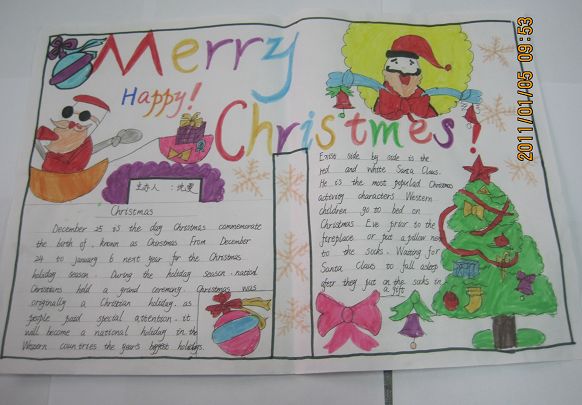 Merry
Happy!
Christmes!
2011/01/05 09:53
主办人:
Christmas
December 25 is the day Christmas commemorate
the birth of, known as Christmas From December
24 to January 6 next year for the Christmas
holiday season. During the holiday season, nation
Christians hold a grand ceremony. Christmas was
originally a Christian holiday, as
people paid special attention. it
will become a national holiday in the
Western countries the year's biggest holidays.
Exise side by side is the
red and White Santa Claus.
He is the most populad Christmas
activity characters Western
children go to bed on
Christmas Eve prior to the
fireplace or put a pillow next
to the Socks. Waiting for
Santa Claus to fall asleep
after they put on the socks in
a gift